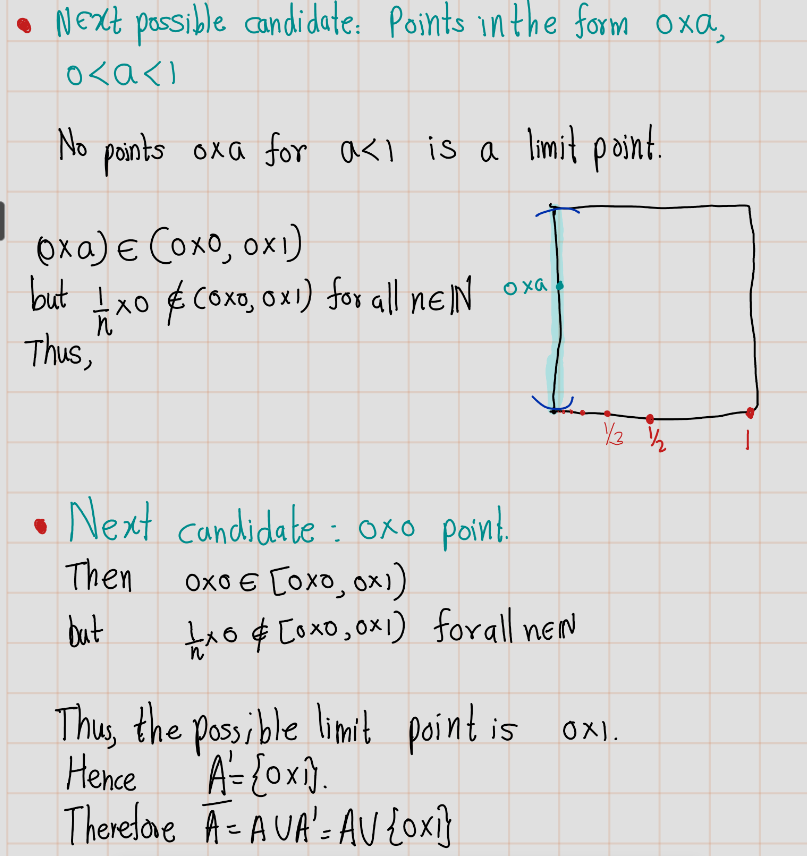 • Next possible candidate: Points in the form 0×a,
0<a<1
No points 0×a for a<1 is a limit point.
(0×a) ∈ (0×0, 0×1)
but 1/n ×0 ∉ (0×0, 0×1) for all n∈ℕ
Thus,
0×a
1/3 1/2 1
• Next candidate: 0×0 point.
Then 0×0 ∈ [0×0, 0×1)
but 1/n ×0 ∉ [0×0, 0×1) for all n∈ℕ
Thus, the possible limit point is 0×1.
Hence A'={0×1}.
Therefore A̅ = A∪A' = A∪{0×1}